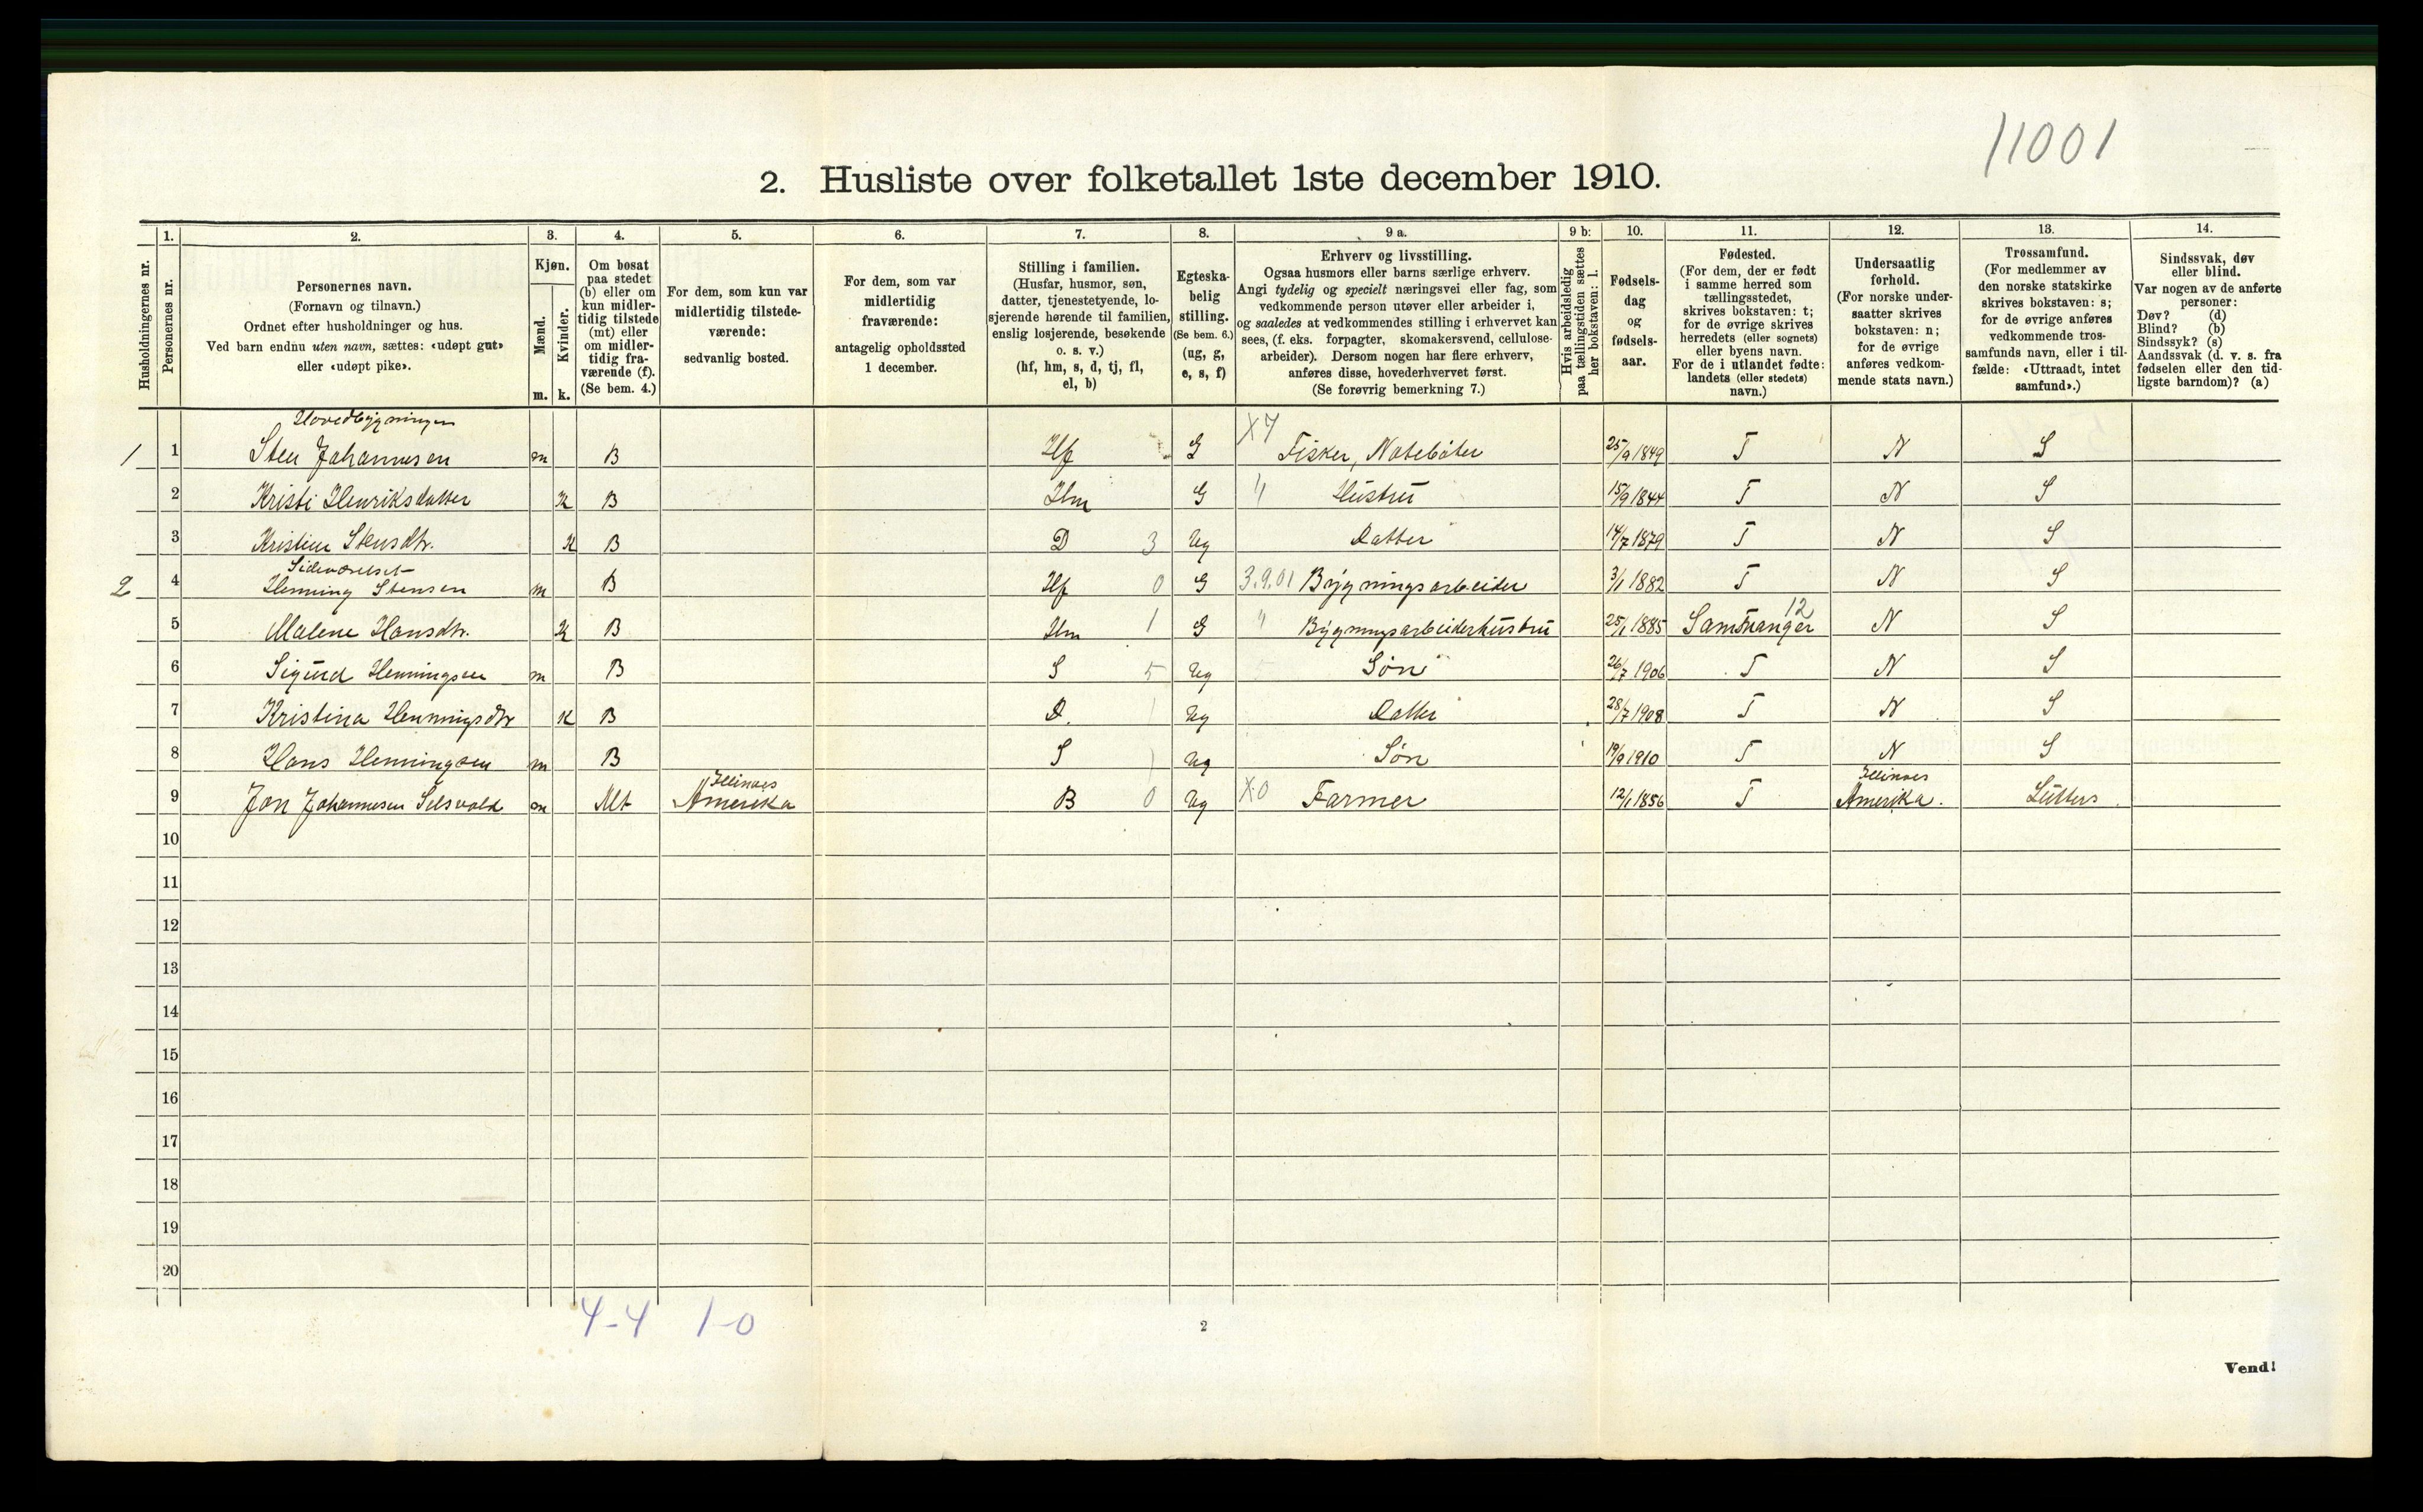 11001
2. Husliste over folketallet 1ste december 1910.
Husholdningernes nr.
1.
Personernes nr.
2.
Personernes navn.
(Fornavn og tilnavn.)
Ordnet efter husholdninger og hus.
Ved barn endnu uten navn, sættes: «udøpt gut»
eller «udøpt pike».
3.
Kjøn.
Mænd.
Kvinder.
m. k.
4.
Om bosat
paa stedet
(b) eller om
kun midler-
tidig tilstede
(mt) eller
om midler-
tidig fra-
værende (f).
(Se bem. 4.)
5.
For dem, som kun var
midlertidig tilstede-
værende:
sedvanlig bosted.
6.
For dem, som var
midlertidig
fraværende:
antagelig opholdssted
1 december.
7.
Stilling i familien.
(Husfar, husmor, søn,
datter, tjenestetyende, lo-
sjerende hørende til familien,
enslig losjerende, besøkende
o. s. v.)
(hf, hm, s, d, tj, fl,
el, b)
8.
Egteska-
belig
stilling.
(Se bem. 6.)
(ug, g,
e, s, f)
9 a.
Erhverv og livsstilling.
Ogsaa husmors eller barns særlige erhverv.
Angi tydelig og specielt næringsvei eller fag, som
vedkommende person utøver eller arbeider i,
og saaledes at vedkommendes stilling i erhvervet kan
sees, (f. eks. forpagter, skomakersvend, cellulose-
arbeider). Dersom nogen har flere erhverv,
anføres disse, hovederhvervet først.
(Se forøvrig bemerkning 7.)
9 b:
Hvis arbeidsledig
paa tællingstiden sættes
her bokstaven: l.
10.
Fødsels-
dag
og
fødsels-
aar.
11.
Fødested.
(For dem, der er født
i samme herred som
tællingsstedet,
skrives bokstaven: t;
for de øvrige skrives
herredets (eller sognets)
eller byens navn.
For de i utlandet fødte:
landets (eller stedets)
navn.)
12.
Undersaatlig
forhold.
(For norske under-
saatter skrives
bokstaven: n;
for de øvrige
anføres vedkom-
mende stats navn.)
13.
Trossamfund.
(For medlemmer av
den norske statskirke
skrives bokstaven: s;
for de øvrige anføres
vedkommende tros-
samfunds navn, eller i til-
fælde: «Uttraadt, intet
samfund».)
14.
Sindssvak, døv
eller blind.
Var nogen av de anførte
personer:
Døv? (d)
Blind? (b)
Sindssyk? (s)
Aandssvak (d. v. s. fra
fødselen eller den tid-
ligste barndom)? (a)
Hovedbygningen
1 1 Sten Johannesen m B Hf G X4 Fisker, Notebøter 25/9 1849 T N S
2 Kristi Henriksdatter K B Hm G " Hustru 15/9 1844 T N S
3 Kristine Stensdtr. K B D 3 Ug Datter 14/7 1879 T N S
Sideværelset
2 4 Henning Stensen m B Hf 0 G 3.9.01 Bygningsarbeider 3/1 1882 T N S
5 Malene Hansdtr. K B Hm 1 G " Bygningsarbeiderhustru 25/1 1885 Samnanger 12 N S
6 Sigurd Henningsen m B S 5 Ug Søn 26/7 1906 T N S
7 Kristina Henningsdtr K B D. 1 Ug Datter 28/7 1908 T N S
8 Hans Henningsen m B S 1 Ug Søn 19/9 1910 T N S
Illinoes Illinoes
9 Jon Johannesen Selsvold m Mt Amerika B 0 Ug X.0 Farmer 12/1 1856 T Amerika. Luthers
10
11
12
13
14
15
16
17
18
19
20
4-4 1-0
2
Vend!